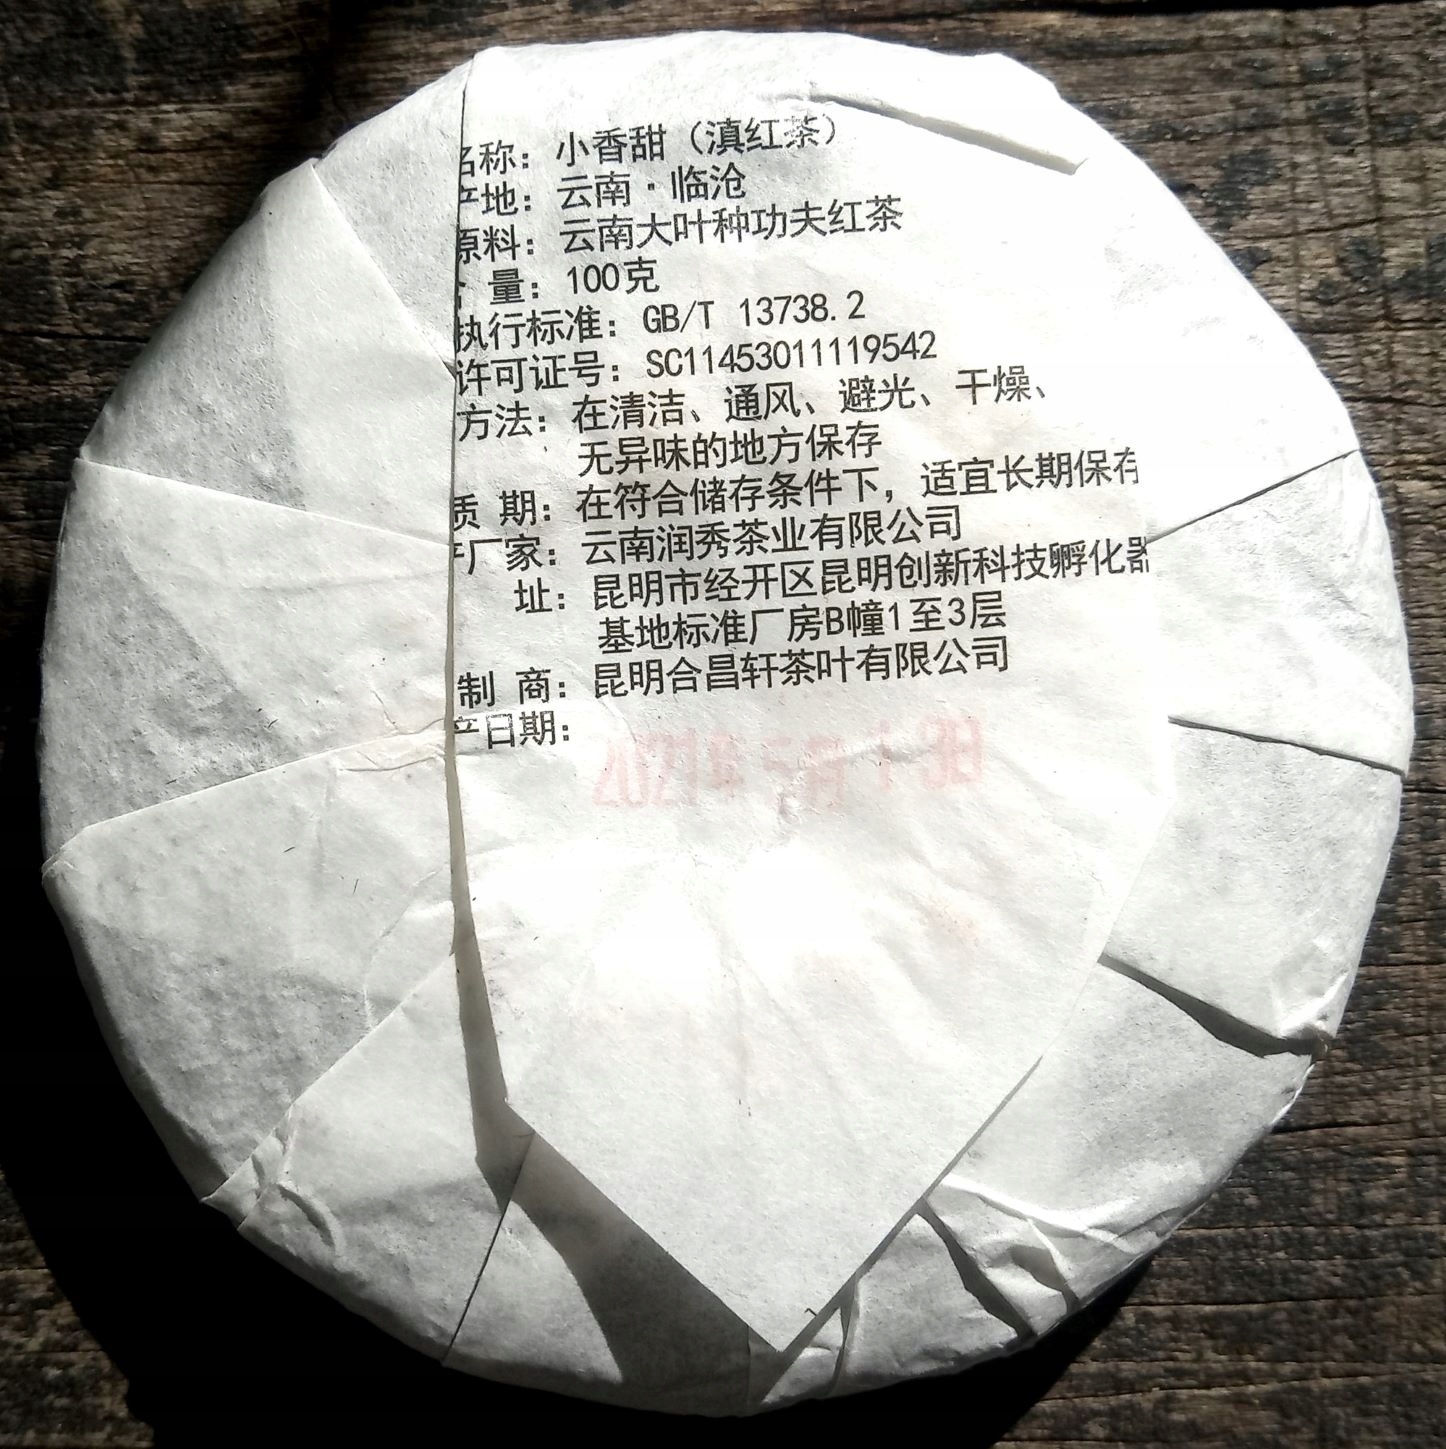 名称：小香甜（滇红茶）
产地：云南·临沧
原料：云南大叶种功夫红茶
量：100克
执行标准：GB/T 13738.2
许可证号：SC11453011119542
方法：在清洁、通风、避光、干燥、
无异味的地方保存
质 期：在符合储存条件下，适宜长期保存
厂家：云南润秀茶业有限公司
址：昆明市经开区昆明创新科技孵化器
基地标准厂房B幢1至3层
制 商：昆明合昌轩茶叶有限公司
产日期：
2021年5月13日